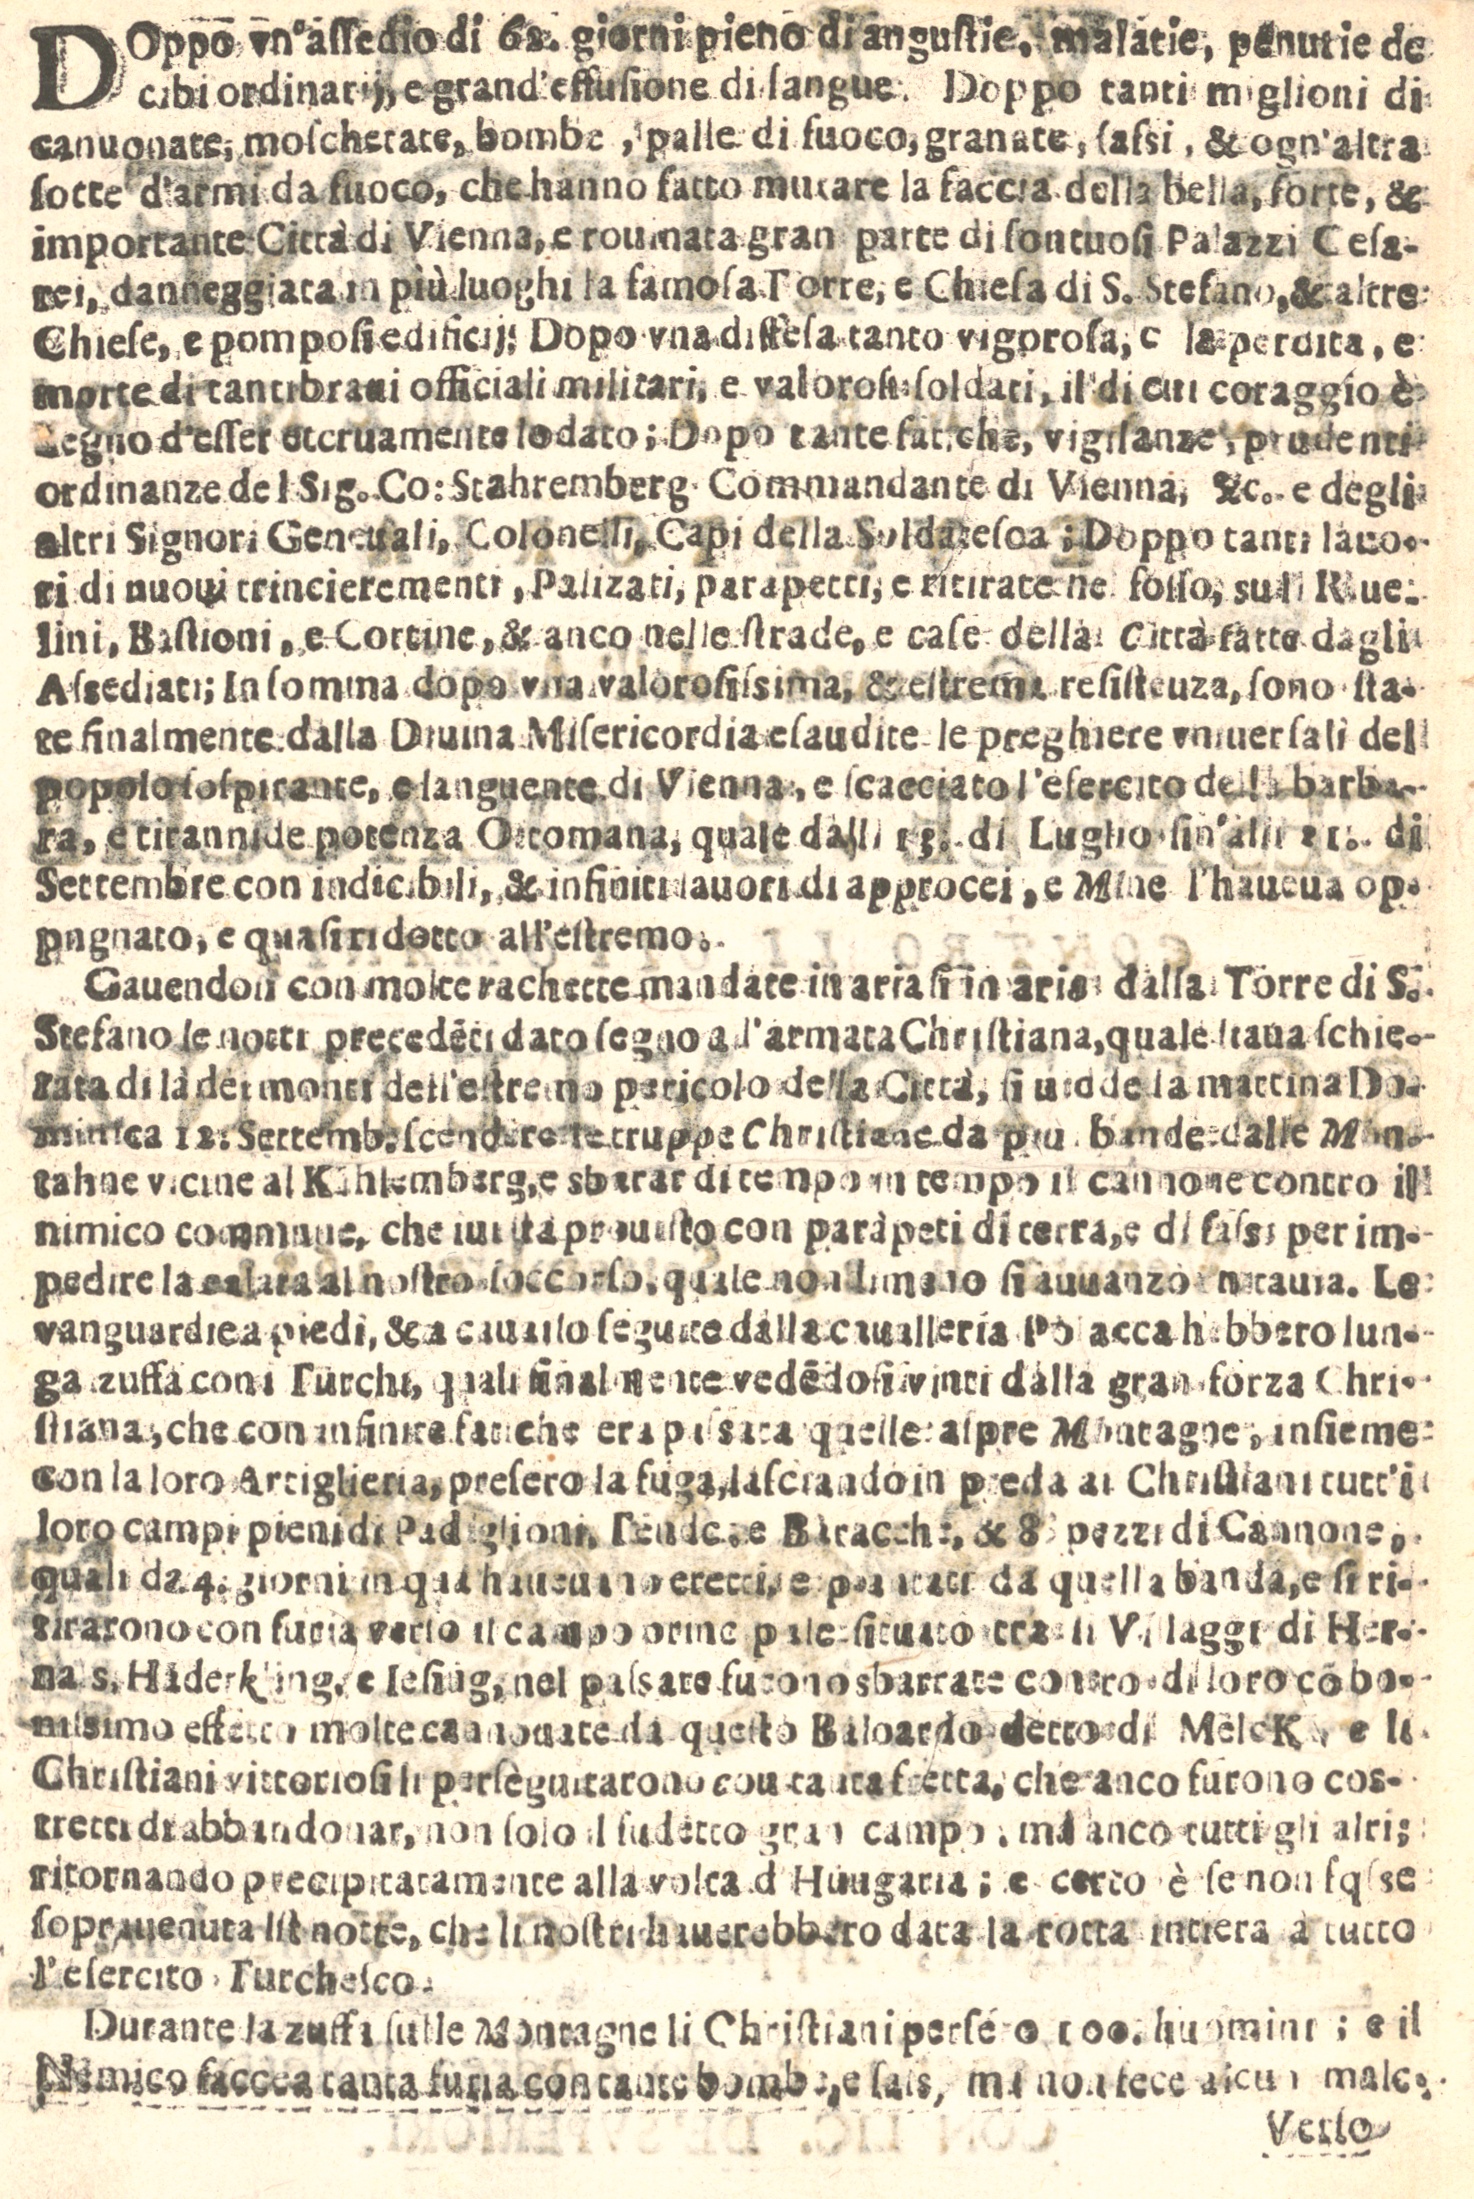 DOppo vn'assedio di 62. giorni pieno di angustie, malatie, penutie de
cibi ordinarij, e grand'effusione di sangue. Doppo tanti miglioni di
canuonate, moschetate, bombe, palle di fuoco, granate, sassi, & ogn'altra
sotte d'armi da fuoco, che hanno fatto mutare la faccia della bella, forte, &
importante Città di Vienna, e rouinata gran parte di sontuosi Palazzi Cesa-
rei, danneggiata in più luoghi la famosa Torre, e Chiesa di S. Stefano, & altre
Chiese, e pomposi edificij; Dopo vna diffesa tanto vigorosa, e la perdita, e
morte di tanti braui officiali militari, e valorosi soldati, il di cui coraggio è
degno d'esser eternamente lodato; Dopo tante fatiche, vigilanze, prudenti
ordinanze del Sig. Co: Stahremberg Commandante di Vienna, &c. e degli
altri Signori Generali, Colonelli, Capi della Soldatesca; Doppo tanti lauo-
ri di nuoui trincierementi, Palizati, parapetti, e ritirate ne fosso, sulli Riue-
lini, Bastioni, e Cortine, & anco nelle strade, e case della Città fatte dagli
Assediati; In somma dopo vna valorosissima, & estrema resistenza, sono sta-
te finalmente dalla Diuina Misericordia esaudite le preghiere vniuersali del
popolo sospirante, e languente di Vienna, e scacciato l'esercito della barba-
ra, e tirannide potenza Ottomana, quale dalli 13. di Luglio sin'alli 11. di
Settembre con indicibili, & infiniti lauori di approcei, e Mine l'haueua op-
pugnato, e quasi ridotto all'estremo.
Gauendosi con molte rachette mandate in aria si in aria dalla Torre di S.
Stefano le notti precedēti dato segno all'armata Christiana, quale staua schie-
rata di là dei monti dell'estremo pericolo della Città, si uidde la mattina Do-
minica 12. Settemb. scendere le truppe Christiane da piu bande dalle Mon-
tahne vicine al Kahlemberg, e sbarar di tempo in tempo il cannone contro il
nimico commune, che iui sta prouisto con parapeti di terra, e di sassi per im-
pedire la calata al nostro soccorso, quale nondimeno si auuanzò tuttauia. Le
vanguardie a piedi, & a cauallo seguite dalla caualleria Polacca hebbero lun-
ga zuffa con i Turchi, quali finalmente vedēdosi vinti dalla gran forza Chri-
stiana, che con infinite fatiche era passata quelle aspre Montagne, insieme
con la loro Artiglieria, presero la fuga, lasciando in preda ai Christiani tutt'i
loro campi pieni di Padiglioni, Tende, e Baracche, & 8 pezzi di Cannone,
quali da 4. giorni in qua haueuano eretti, e piantati da quella banda, e si ri-
tirarono con furia verso il campo situato tra li Villaggi di Her-
nals, Haderkling, e nel passare furono sbarrate contro di loro cō bo-
nissimo effetto molte cannonate da questo Baloardo detto di Melck, e li
Christiani vittoriosi li perseguitarono con tanta fretta, che anco furono cos-
tretti di abbandonar, non solo il sudetto gran campo, ma anco tutti gli altri;
ritornando precipitatamente alla volta d'Hungaria; e certo è se non fosse
soprauenuta la notte, che li nostri hauerebbero data la rotta intiera à tutto
l'esercito Turchesco.
Durante la zuffa sulle Montagne li Christiani persero 100. huomini; e il
Nemico faccea tanta furia con tante bombe, e sass, ma non fece alcun male.
Verso
CON LIC. DE SVPERIORI.